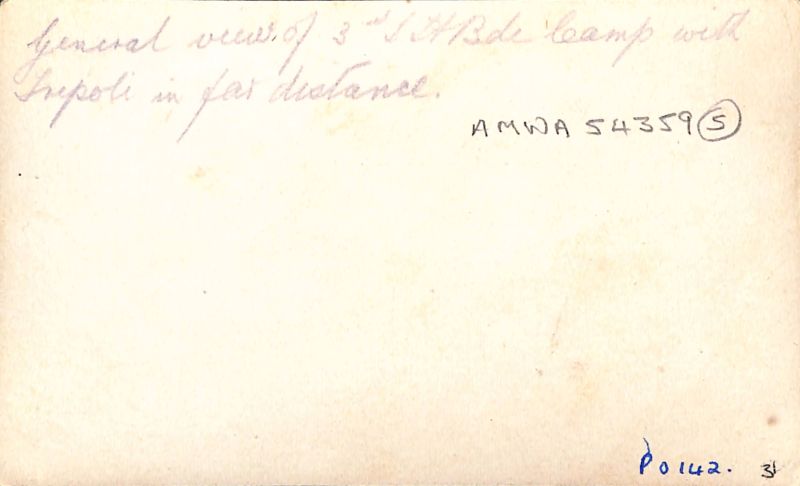 General view of 3rd L H Bde Camp with
Tripoli in far distance.
AMWA 54359 5
P0142.
31